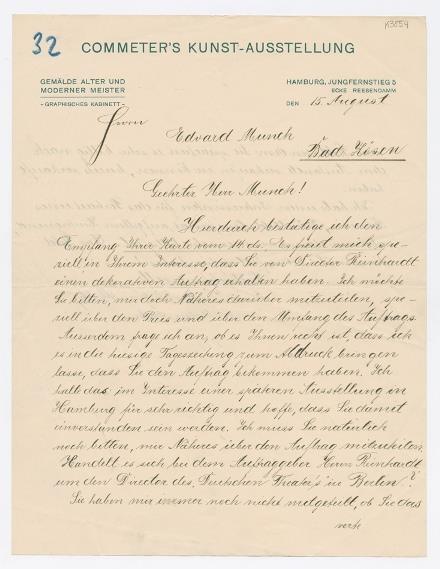 32
K3554
COMMETER'S KUNST-AUSSTELLUNG
GEMÄLDE ALTER UND
MODERNER MEISTER
- GRAPHISCHES KABINETT -
HAMBURG, JUNGFERNSTIEG 5
ECKE REESENDAMM
DEN 15. August
Herrn
Edvard Munch
Bad Kösen
Geehrter Herr Munch!
Hierdurch bestätige ich den
Empfang Ihrer Karte vom 14. ds. Es freut mich spe-
ziell in Ihrem Interesse, dass Sie von Director Reinhardt
einen dekorativen Auftrag erhalten haben. Ich möchte
Sie bitten, mir doch Näheres darüber mitzuteilen, spe-
ziell über den Preis und über den Umfang des Auftrags.
Ausserdem frage ich an, ob es Ihnen recht ist, dass ich
es in die hiesige Tageszeitung zum Abdruck bringen
lasse, dass Sie den Auftrag bekommen haben. Ich
halte das im Interesse einer späteren Ausstellung in
Hamburg für sehr richtig und hoffe, dass Sie damit
einverstanden sein werden. Ich muss Sie natürlich
noch bitten, mir Näheres über den Auftrag mitzuteilen.
Handelt es sich bei dem Auftraggeber Herrn Reinhardt
um den Director des Deutschen Theater's in Berlin?
Sie haben mir immer noch nicht mitgeteilt, ob Sie das